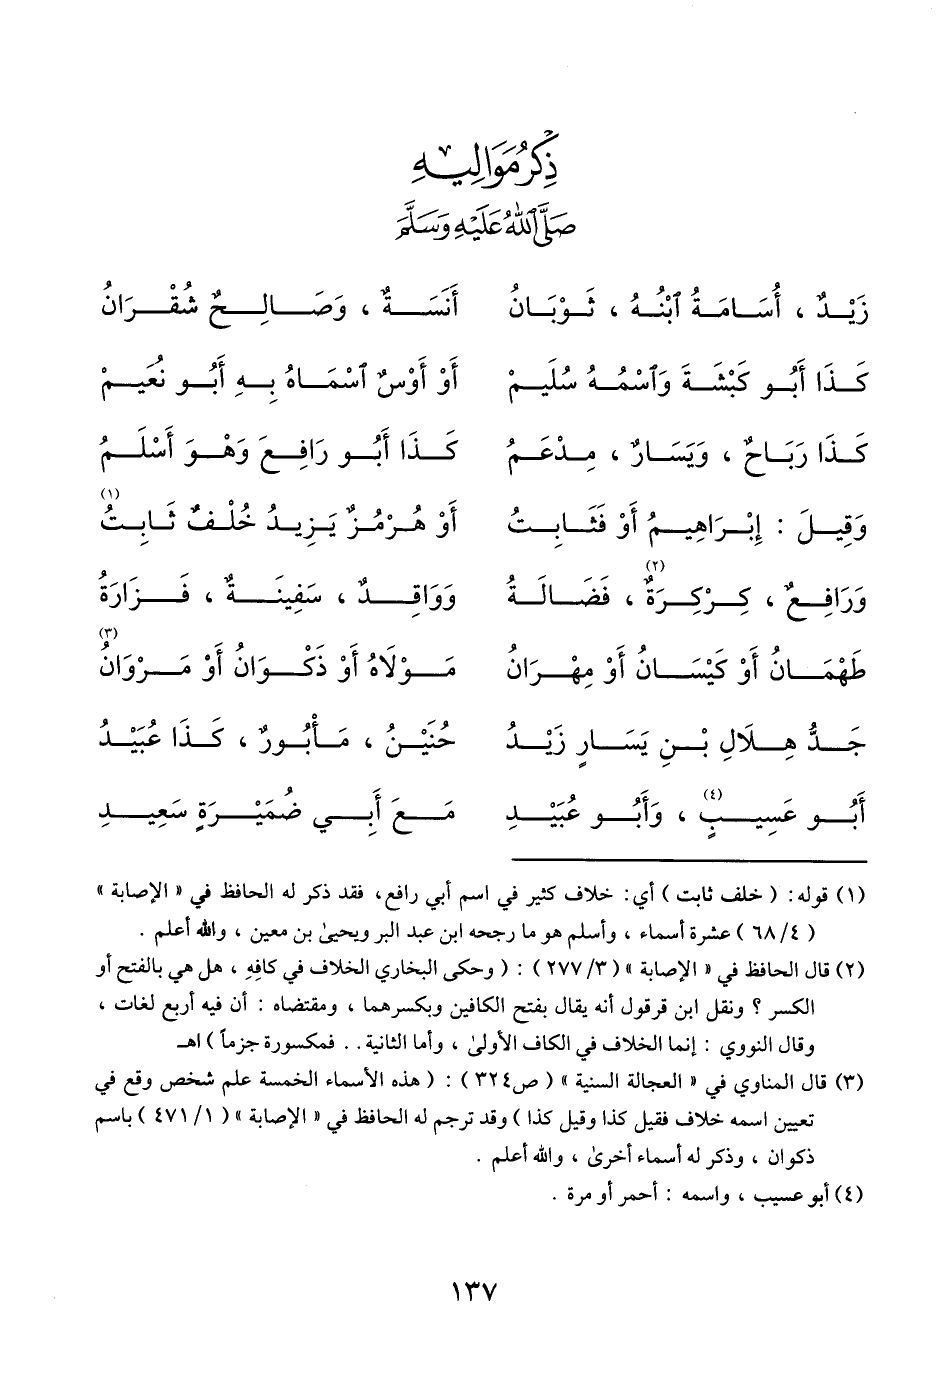 ذِكْرُ مَوَالِيْهِ
صَلَّى ٱللَّهُ عَلَيْهِ وَسَلَّمَ
زَيْدٌ ، أُسَامَةُ ٱبْنُهُ ، ثَوْبَانُ أَنَسَةٌ ، وَصَالِحٌ شُقْرَانُ
كَذَا أَبُو كَبْشَةَ وَٱسْمُهُ سُلَيمْ أَوْ أَوْسٌ ٱسْمَاهُ بِهِ أَبُو نُعَيمْ
كَذَا رَبَاحٌ ، وَيَسَارٌ ، مِدْعَمُ كَذَا أَبُو رَافِعَ وَهْوَ أَسْلَمُ
وَقِيلَ : إِبْرَاهِيمُ أَوْ فَثَابِتُ أَوْ هُرْمُزٌ يَزِيدُ خُلْفٌ ثَابِتُ (١)
وَرَافِعٌ ، كِرْكِرَةٌ (٢) ، فَضَالَةُ وَوَاقِدٌ ، سَفِينَةٌ ، فَزَارَةُ
طَهْمَانُ أَوْ كَيْسَانُ أَوْ مِهْرَانُ مَوْلَاهُ أَوْ ذَكْوَانُ أَوْ مَرْوَانُ (٣)
جَدُّ هِلَالِ بْنِ يَسَارٍ زَيْدُ حُنَيْنُ ، مَأْبُورٌ ، كَذَا عُبَيْدُ
أَبُو عَسِيبٍ (٤) ، وَأَبُو عُبَيْدِ مَعَ أَبِي ضُمَيْرَةٍ سَعِيدِ
(١) قوله: ( خلف ثابت ) أي: خلاف كثير في اسم أبي رافع، فقد ذكر له الحافظ في « الإصابة »
( ٦٨/٤ ) عشرة أسماء ، وأسلم هو ما رجحه ابن عبد البر ويحيىٰ بن معين ، والله أعلم .
(٢) قال الحافظ في « الإصابة » ( ٢٧٧/٣ ) : ( وحكى البخاري الخلاف في كافِهِ ، هل هي بالفتح أو
الكسر ؟ ونقل ابن قرقول أنه يقال بفتح الكافين وبكسرهما ، ومقتضاه : أن فيه أربع لغات ،
وقال النووي : إنما الخلاف في الكاف الأولىٰ ، وأما الثانية . . فمكسورة جزماً ) اهـ
(٣) قال المناوي في « العجالة السنية » ( ص٣٢٤ ) : ( هذه الأسماء الخمسة علم شخص وقع في
تعيين اسمه خلاف فقيل كذا وقيل كذا ) وقد ترجم له الحافظ في « الإصابة » ( ٤٧١/١ ) باسم
ذكوان ، وذكر له أسماء أخرىٰ ، والله أعلم .
(٤) أبو عسيب ، واسمه : أحمر أو مرة .
١٣٧